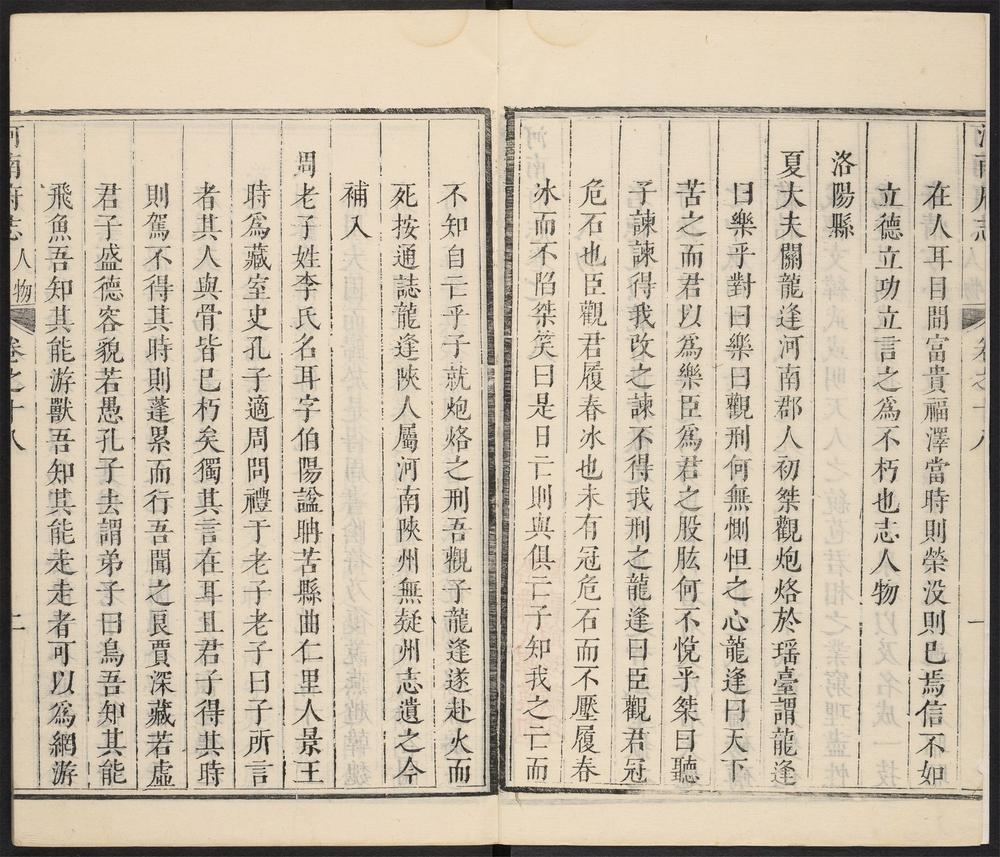 在人耳目間富貴福澤當時則榮沒則已焉信不如
立德立功立言之爲不朽也志人物
洛陽縣
夏大夫關龍逢河南郡人初桀觀炮烙於瑶臺謂龍逢
曰樂乎對曰樂曰觀刑何無惻怛之心龍逢曰天下
苦之而君以爲樂臣爲君之股肱何不悅乎桀曰聽
子諫諫得我改之諫不得我刑之龍逢曰臣觀君冠
危石也臣觀君履春冰也未有冠危石而不壓履春
冰而不陷桀笑曰是日亡則與俱亡子知我之亡而
不知自亡乎子就炮烙之刑吾觀子龍逢遂赴火而
死按通誌龍逢陝人屬河南陝州無疑州志遺之今
補入
周老子姓李氏名耳字伯陽諡聃苦縣曲仁里人景王
時爲藏室史孔子適周問禮于老子老子曰子所言
者其人與骨皆已朽矣獨其言在耳且君子得其時
則駕不得其時則蓬累而行吾聞之良賈深藏若虛
君子盛德容貌若愚孔子去謂弟子曰鳥吾知其能
飛魚吾知其能游獸吾知其能走走者可以爲網游
河南府志 人物 卷之十八 二